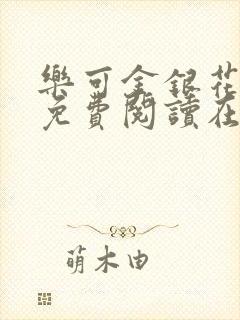 樂可金銀花
免費閱讀在
萌木由